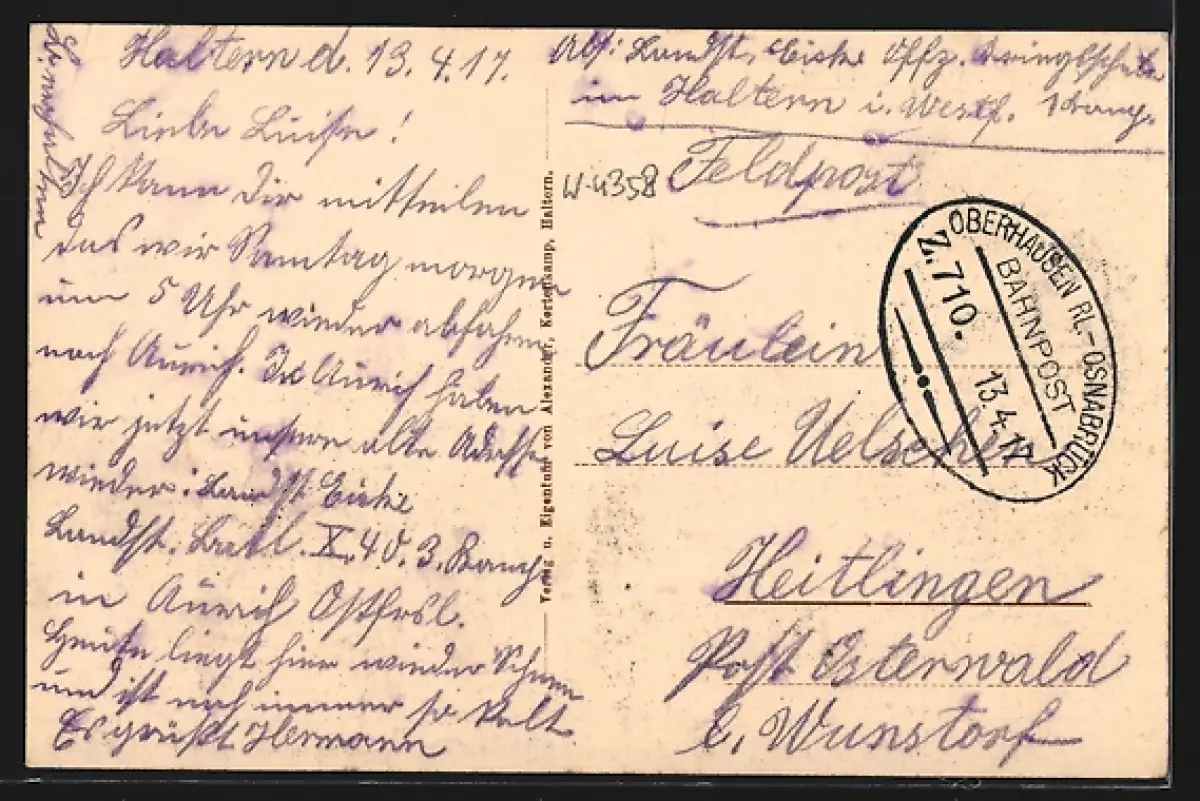 Haltern d. 13.4.17.
Liebe Luise!
Ich kann Dir mitteilen
das wir Samtag morgen
um 5 Uhr wieder abfahren
nach Aurich. In Aurich haben
wir jetzt unsere alte Adresse
wieder. Landst. Eicke
Landst. Batl. X. 40. 3. Komp.
in Aurich Ostfrsl.
Heute liegt hier wieder Schnee
und ist noch immer so kalt
Es grüßt Hermann
Abs: Landst. Eicke Offz.
im Haltern i. Westf. 1 Komp.
Feldpost
W-4358
Fräulein
Luise Uelschen
Heitlingen
Post Osterwald
b. Wunstorf
Verlag u. Eigentum von Alexander, Kortenkamp, Haltern.
OBERHAUSEN RL.-OSNABRÜCK
BAHNPOST
Z.710.
13.4.17